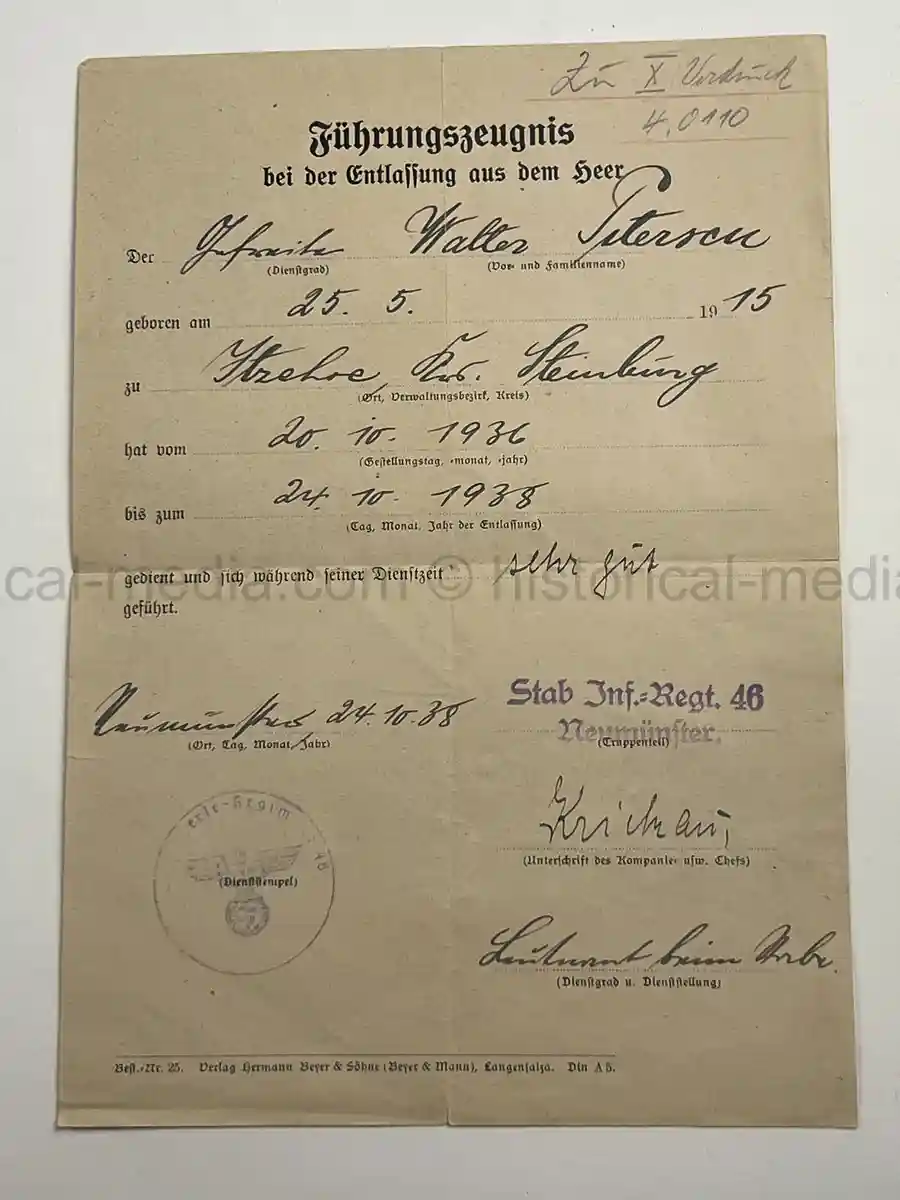 Zu X Vordruck
4.0110
Führungszeugnis
bei der Entlassung aus dem Heer
Der Gefreite Walter Petersen
(Dienstgrad) (Vor- und Familienname)
geboren am 25. 5. 1915
zu Itzehoe, Krs. Steinburg
(Ort, Verwaltungsbezirk, Kreis)
hat vom 20. 10. 1936
(Gestellungstag, -monat, -jahr)
bis zum 24. 10. 1938
(Tag, Monat, Jahr der Entlassung)
cal-media.com © historical-media
gedient und sich während seiner Dienstzeit sehr gut
geführt.
Stab Inf.-Regt. 46
Neumünster 24.10.38 Neumünster.
(Ort, Tag, Monat, Jahr) (Truppenteil)
(Unterschrift des Kompanie- usw. Chefs)
46
(Dienststempel)
Leutnant beim Stabe
(Dienstgrad u. Dienststellung)
Best.-Nr. 25. Verlag Hermann Beyer & Söhne (Beyer & Mann), Langensalza. Din A 5.